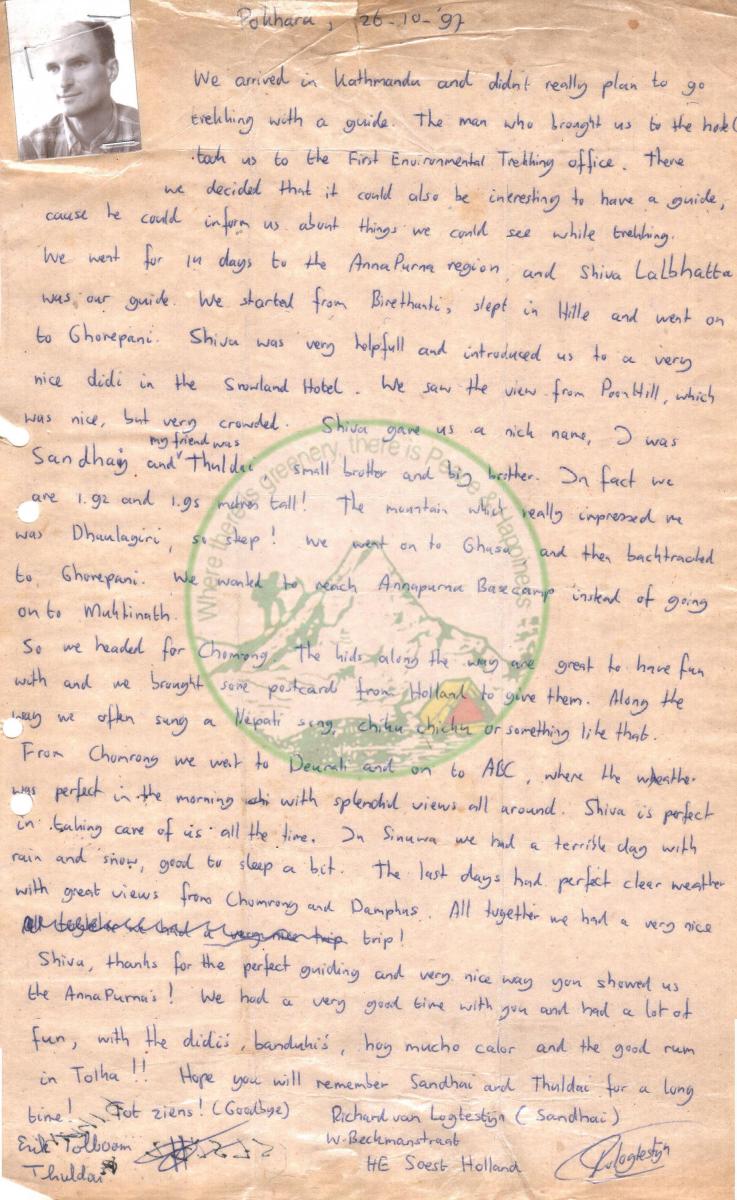 Pokhara, 26-10-'97
We arrived in Kathmandu and didn't really plan to go
trekking with a guide. The man who brought us to the hotel
took us to the First Environmental Trekking office. There
we decided that it could also be interesting to have a guide,
cause he could inform us about things we could see while trekking.
We went for 14 days to the AnnaPurna region, and Shiva Lalbhatta
was our guide. We started from Birethanti, slept in Hille and went on
to Ghorepani. Shiva was very helpfull and introduced us to a very
nice didi in the Snowland Hotel. We saw the view from PoonHill, which
was nice, but very crowded. Shiva gave us a nick name, I was
my friend was
Sandhaij and Thuldai, small brother and big brother. In fact we
are 1.92 and 1.95 metres tall! The mountain which really impressed me
was Dhaulagiri, so steep! We went on to Ghasa and then backtracked
to Ghorepani. We wanted to reach Annapurna Basecamp instead of going
on to Muktinath.
So we headed for Chomrong. The kids along the way are great to have fun
with and we brought some postcards from Holland to give them. Along the
way we often sung a Nepali song, chiku chicku or something like that.
From Chomrong we went to Deurali and on to ABC, where the wheather
was perfect in the morning with splendid views all around. Shiva is perfect
in taking care of us all the time. In Sinuwa we had a terrible day with
rain and snow, good to sleep a bit. The last days had perfect clear weather
with great views from Chumrong and Damphus. All together we had a very nice
trip!
Shiva, thanks for the perfect guiding and very nice way you showed us
the AnnaPurna's! We had a very good time with you and had a lot of
fun, with the didi's, banduki's, hoy mucho calor and the good rum
in Tolka!! Hope you will remember Sandhai and Thuldai for a long
time! Tot ziens! (Goodbye)
Richard van Logtestijn (Sandhai)
W. Beckmanstraat
HE Soest Holland
Erik Tolboom
Thuldai
Where there is greenery, there is Peace & Happiness